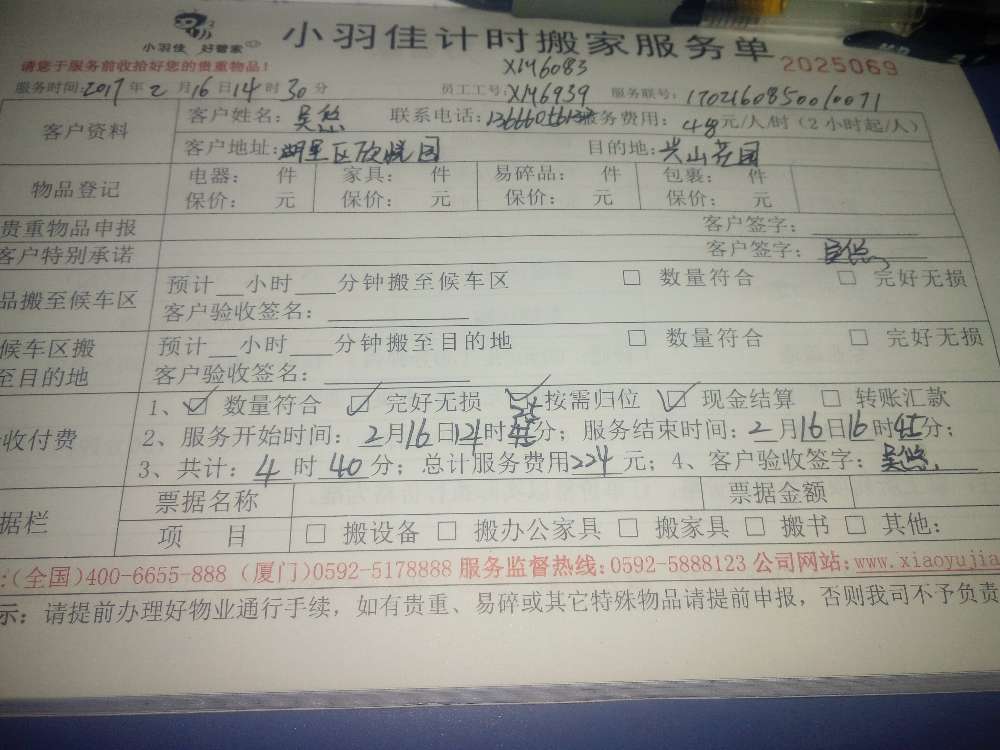 小羽佳 好管家
小羽佳计时搬家服务单
2025069
请您于服务前收拾好您的贵重物品!
XM6083
服务时间:2017年2月16日14时30分 员工工号:XM6939 服务联号:1702160850010071
客户资料
客户姓名: 联系电话: 服务费用:48元/人/时(2小时起/人)
客户地址:湖里区欣悦园 目的地:兴山花园
物品登记
电器: 件 家具: 件 易碎品: 件 包裹: 件
保价: 元 保价: 元 保价: 元 保价: 元
贵重物品申报 客户签字:
客户特别承诺 客户签字:
品搬至候车区
预计__小时___分钟搬至候车区 □ 数量符合 □ 完好无损
客户验收签名:
候车区搬至目的地
预计__小时___分钟搬至目的地 □ 数量符合 □ 完好无损
客户验收签名:
收付费
1、☑ 数量符合 ☑ 完好无损 ☑ 按需归位 ☑ 现金结算 □ 转账汇款
2、服务开始时间:2月16日时分;服务结束时间:2月16日16时45分;
3、共计:4时40分;总计服务费用224元;4、客户验收签字:
据栏
票据名称 票据金额
项 目 □ 搬设备 □ 搬办公家具 □ 搬家具 □ 搬书 □ 其他:
:(全国)400-6655-888 (厦门)0592-5178888 服务监督热线:0592-5888123 公司网站:www.xiaoyujia
示:请提前办理好物业通行手续,如有贵重、易碎或其它特殊物品请提前申报,否则我司不予负责